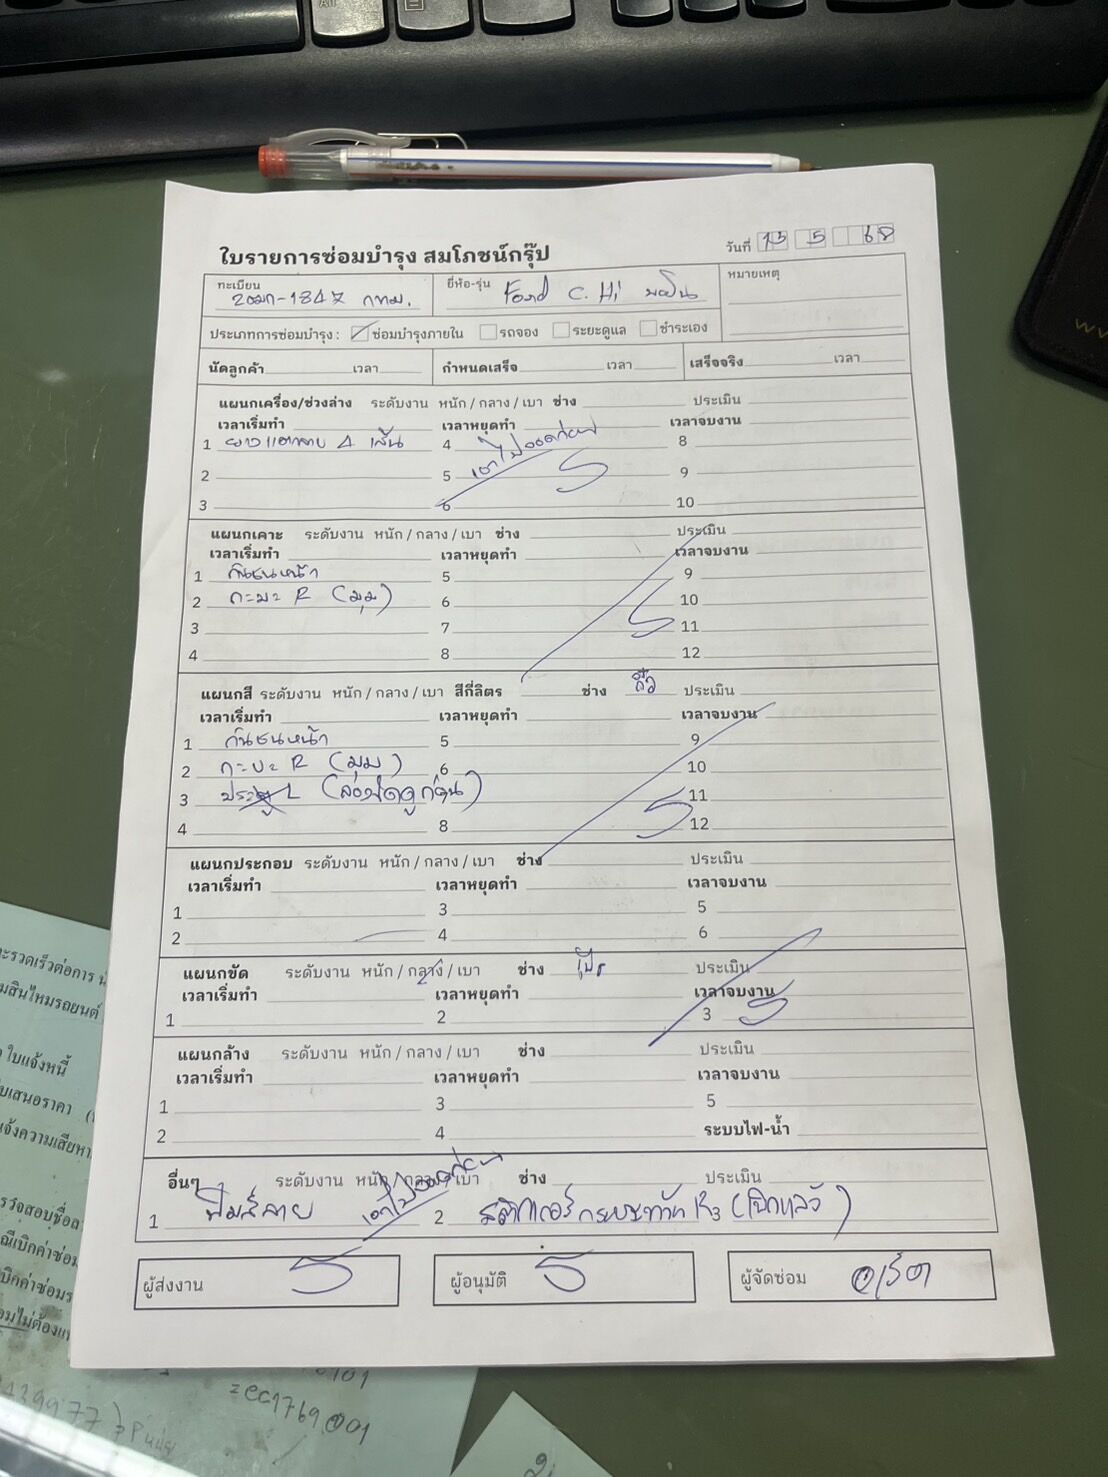 ใบรายการซ่อมบำรุง สมโภชน์กรุ๊ป
วันที่ 15 5 68
ทะเบียน 2ฒก-1847 กทม.
ยี่ห้อ-รุ่น Ford C. Hi
หมายเหตุ
ประเภทการซ่อมบำรุง : ซ่อมบำรุงภายใน รถจอง ระยะดูแล ชำระเอง
นัดลูกค้า เวลา กำหนดเสร็จ เวลา เสร็จจริง เวลา
แผนกเครื่อง/ช่วงล่าง ระดับงาน หนัก / กลาง / เบา ช่าง ประเมิน
เวลาเริ่มทำ เวลาหยุดทำ เวลาจบงาน
1 ยางแตกลาย 4 เส้น 4 8
2 5 เอาไปจอดก่อน 9
3 6 10
แผนกเคาะ ระดับงาน หนัก / กลาง / เบา ช่าง ประเมิน
เวลาเริ่มทำ เวลาหยุดทำ เวลาจบงาน
1 กันชนหน้า 5 9
2 กะบะ R (มุม) 6 10
3 7 11
4 8 12
แผนกสี ระดับงาน หนัก / กลาง / เบา สีกี่ลิตร ช่าง ประเมิน
เวลาเริ่มทำ เวลาหยุดทำ เวลาจบงาน
1 กันชนหน้า 5 9
2 กะบะ R (มุม) 6 10
3 ประตู L (ลองขัดดูก่อน) 11
4 8 12
แผนกประกอบ ระดับงาน หนัก / กลาง / เบา ช่าง ประเมิน
เวลาเริ่มทำ เวลาหยุดทำ เวลาจบงาน
1 3 5
2 4 6
แผนกขัด ระดับงาน หนัก / กลาง / เบา ช่าง ประเมิน
เวลาเริ่มทำ เวลาหยุดทำ เวลาจบงาน
1 2 3
แผนกล้าง ระดับงาน หนัก / กลาง / เบา ช่าง ประเมิน
เวลาเริ่มทำ เวลาหยุดทำ เวลาจบงาน
1 3 5
2 4 ระบบไฟ-น้ำ
อื่นๆ ระดับงาน หนัก / กลาง / เบา ช่าง ประเมิน
1 ฟิมส์ลาย เอาไปจอดก่อน 2 สติกเกอร์ (เบิกแล้ว)
ผู้ส่งงาน ผู้อนุมัติ ผู้จัดซ่อม
ะรวดเร็วต่อการ
มสินไหมรถยนต์
ใบแจ้งหนี้
บเสนอราคา
จ้งความเสียหา
=ec1769001